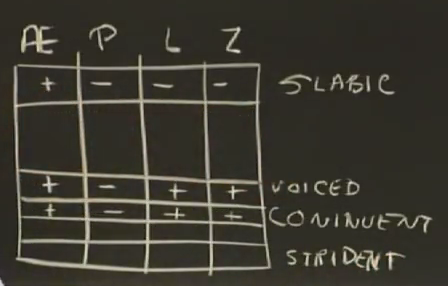 AE P L Z
+ - - - SLABIC
+ - + + VOICED
+ - + + CONINUENT
STRIDENT